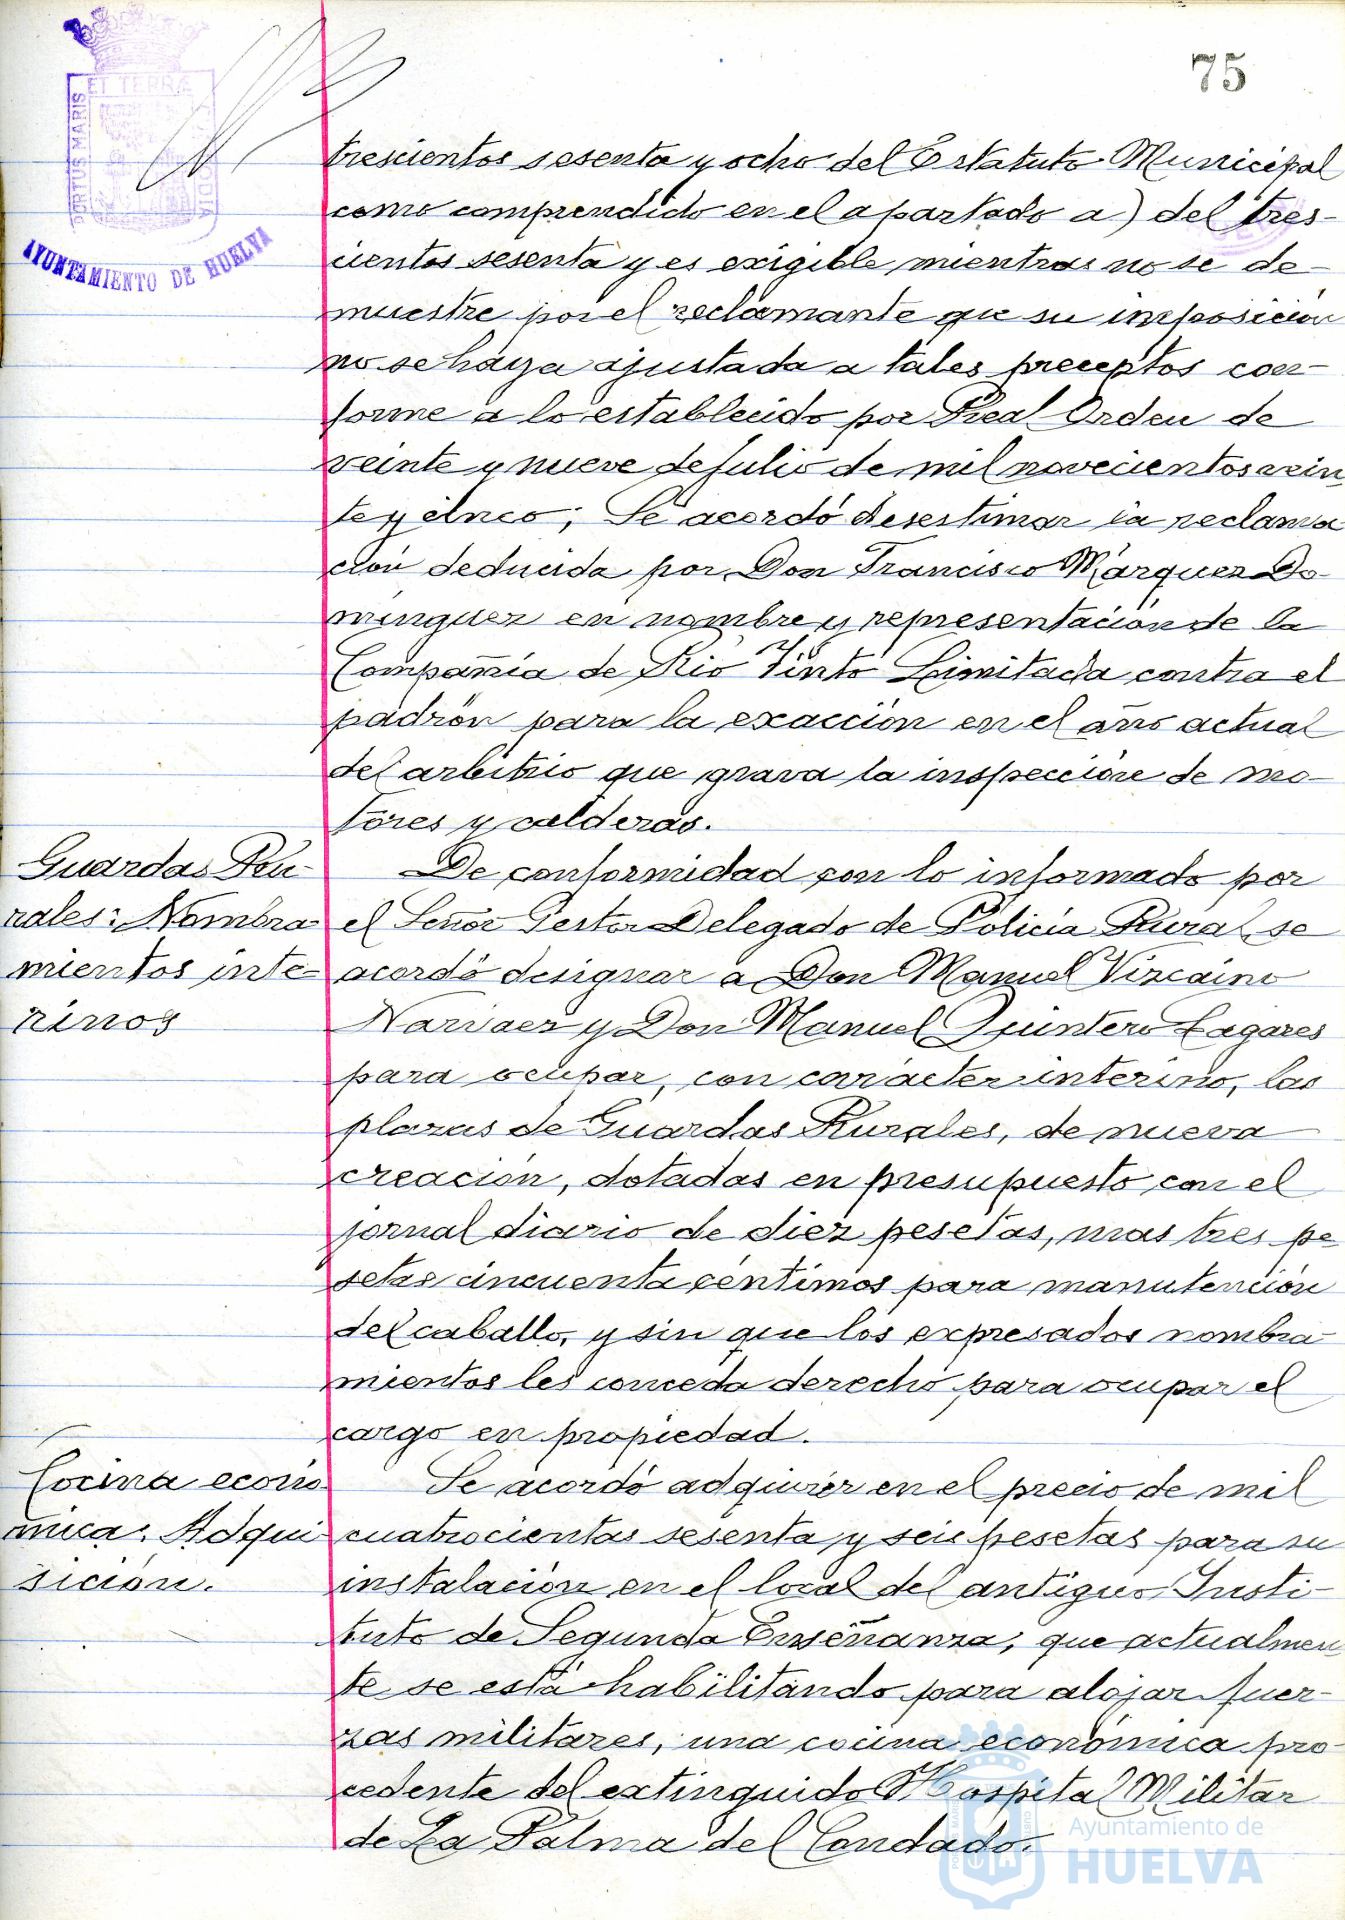 75
PORTUS MARIS ET TERRÆ CUSTODIA
AYUNTAMIENTO DE HUELVA
trescientos sesenta y ocho del Estatuto Municipal
como comprendido en el apartado a) del tres-
cientos sesenta y es exigible mientras no se de-
muestre por el reclamante que su imposición
no se haya ajustada a tales preceptos con-
forme a lo establecido por Real Orden de
veinte y nueve de Julio de mil novecientos vein
te y cinco; Se acordó desestimar la reclama
ción deducida por Don Francisco Márquez Do-
minguez en nombre y representación de la
Compañía de Rio Tinto Limitada contra el
padrón para la exacción en el año actual
del arbitrio que grava la inspección de mo-
tores y calderas.
Guardas Ru-
rales: Nombra-
mientos inte-
rinos
De conformidad con lo informado por
el Señor Gestor Delegado de Policía Rural, se
acordó designar a Don Manuel Vizcaino
Narvaez y Don Manuel Quintero Lagares
para ocupar, con carácter interino, las
plazas de Guardas Rurales, de nueva
creación, dotadas en presupuesto con el
jornal diario de diez pesetas, mas tres pe-
setas cincuenta céntimos para manutención
del caballo, y sin que los expresados nombra-
mientos les conceda derecho para ocupar el
cargo en propiedad.
Cocina econó-
mica. Adqui-
sición.
Se acordó adquirir en el precio de mil
cuatrocientas sesenta y seis pesetas para su
instalación en el local del antiguo Insti-
tuto de Segunda Enseñanza, que actualmen
te se está habilitando para alojar fuer-
zas militares, una cocina económica pro-
cedente del extinguido Hospital Militar
de La Palma del Condado.
Ayuntamiento de
HUELVA